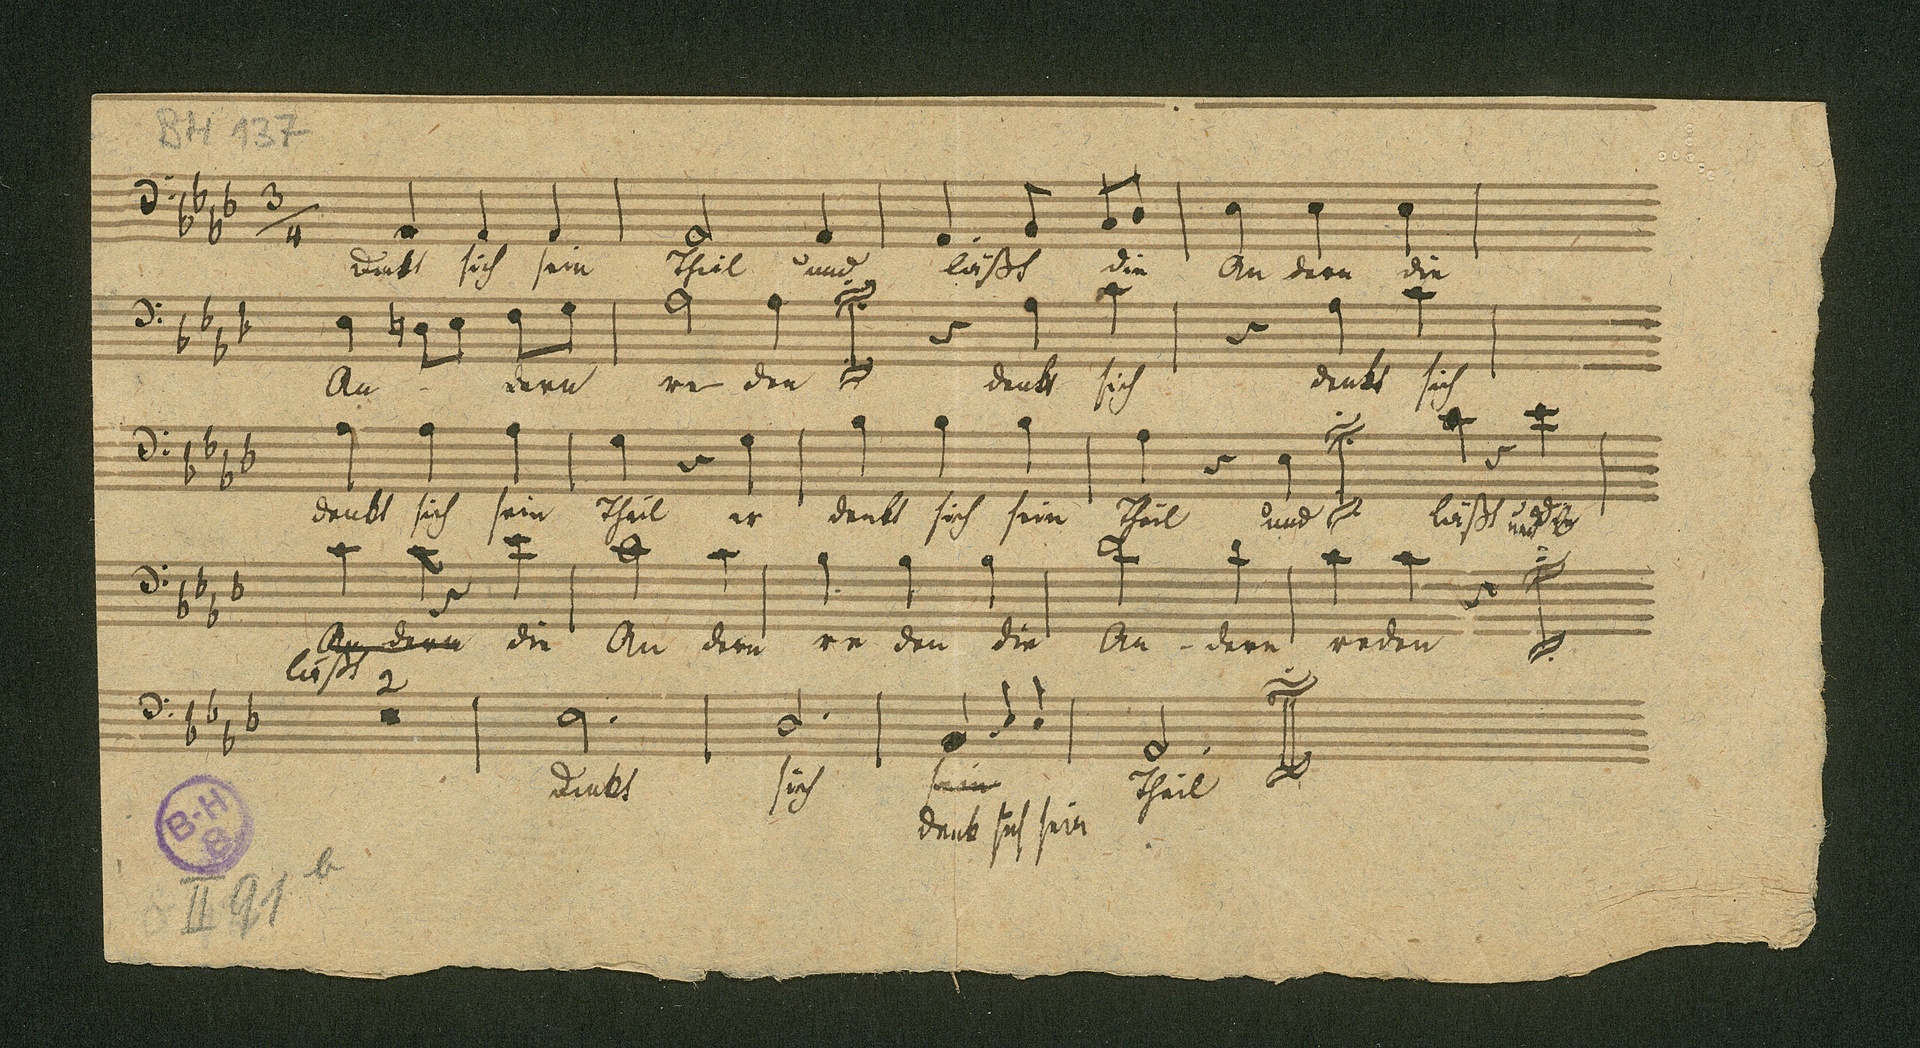 BH 137
3/4
Denkt sich sein Theil und läßt die An dern die
An - dern re den denkt sich denkt sich
denkt sich sein Theil er denkt sich sein Theil und läßt und er
An dern die An dern re den die An - dern reden
läßt 2
Denkt sich sein Theil
denk sich sein
B-H
B
II 91 b